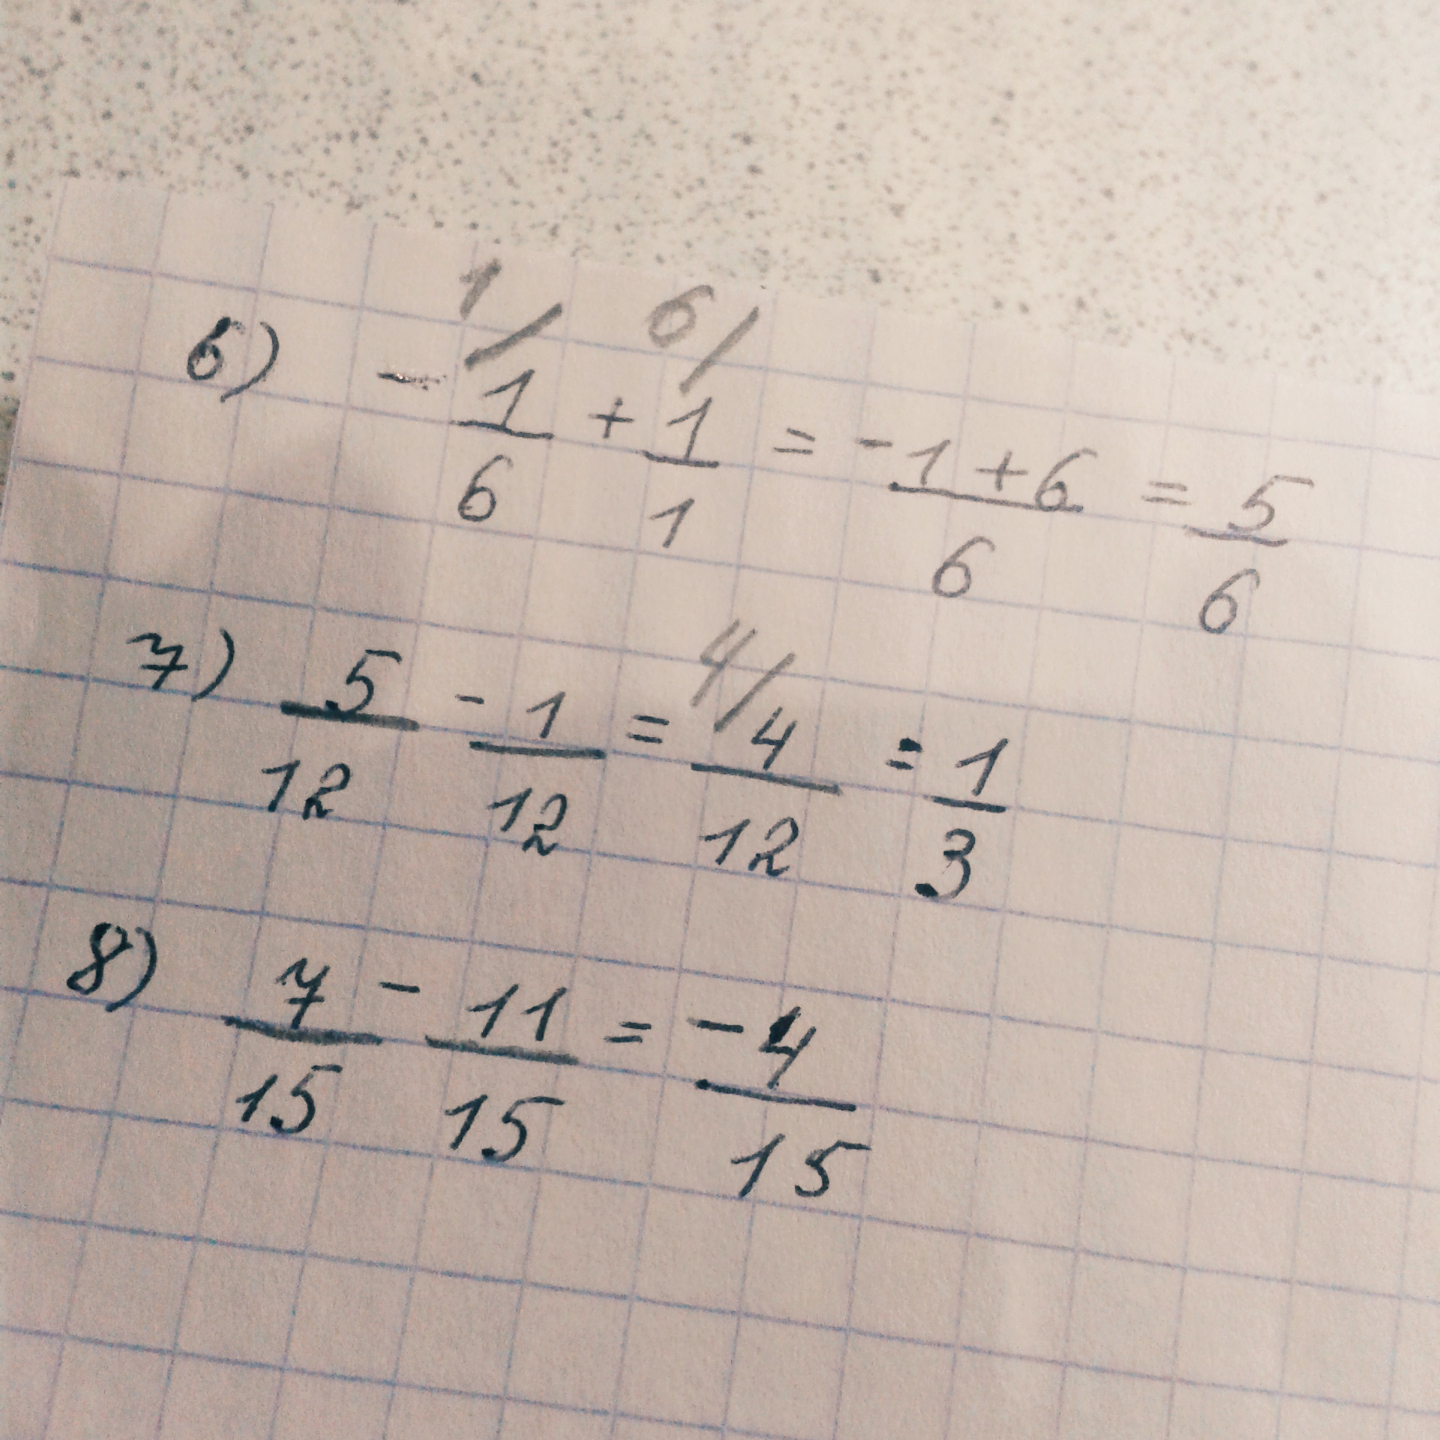 6) - 1/ 1/6 + 6/ 1/1 = -1+6/6 = 5/6
7) 5/12 - 1/12 = 4/ 4/12 = 1/3
8) 7/15 - 11/15 = -4/15